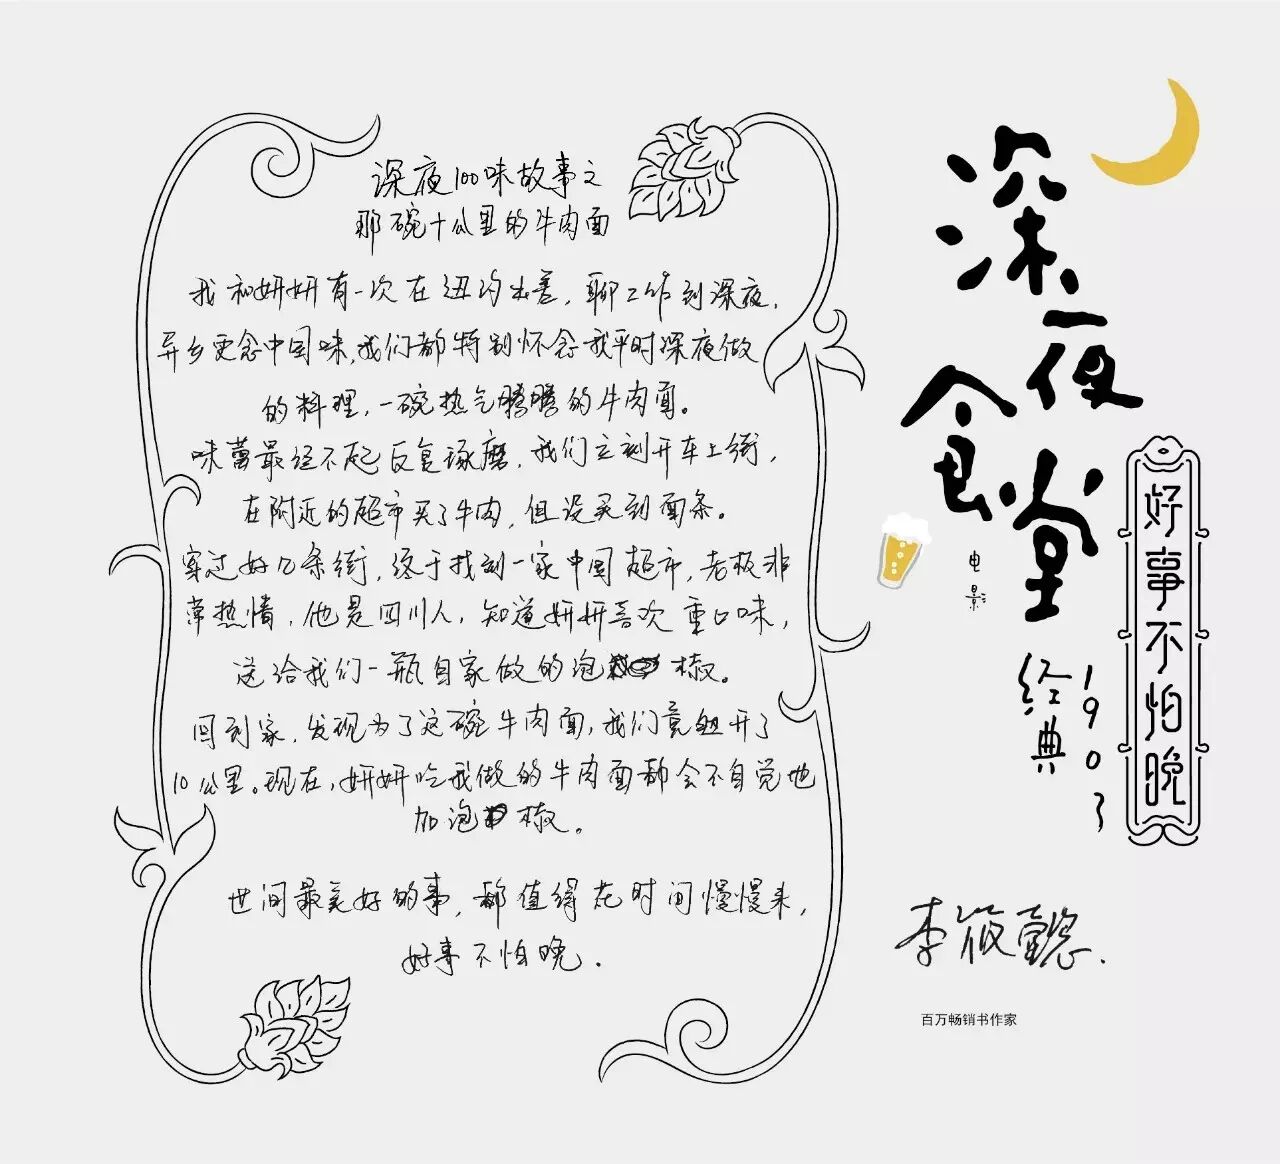 深夜100味故事之
那碗十公里的牛肉面
我和妍妍有一次在纽约出差，聊工作到深夜，
异乡更念中国味，我们都特别怀念我平时深夜做
的料理，一碗热气腾腾的牛肉面。
味蕾最经不起反复琢磨，我们立刻开车上街，
在附近的超市买了牛肉，但没买到面条。
穿过好几条街，终于找到一家中国超市，老板非
常热情，他是四川人，知道妍妍喜欢重口味，
送给我们一瓶自家做的泡椒。
回到家，发现为了这碗牛肉面，我们竟然开了
10公里。现在，妍妍吃我做的牛肉面都会不自觉地
加泡椒。
世间最美好的事，都值得花时间慢慢来，
好事不怕晚．
深夜食堂
电影
经典1903
好事不怕晚
李筱懿．
百万畅销书作家